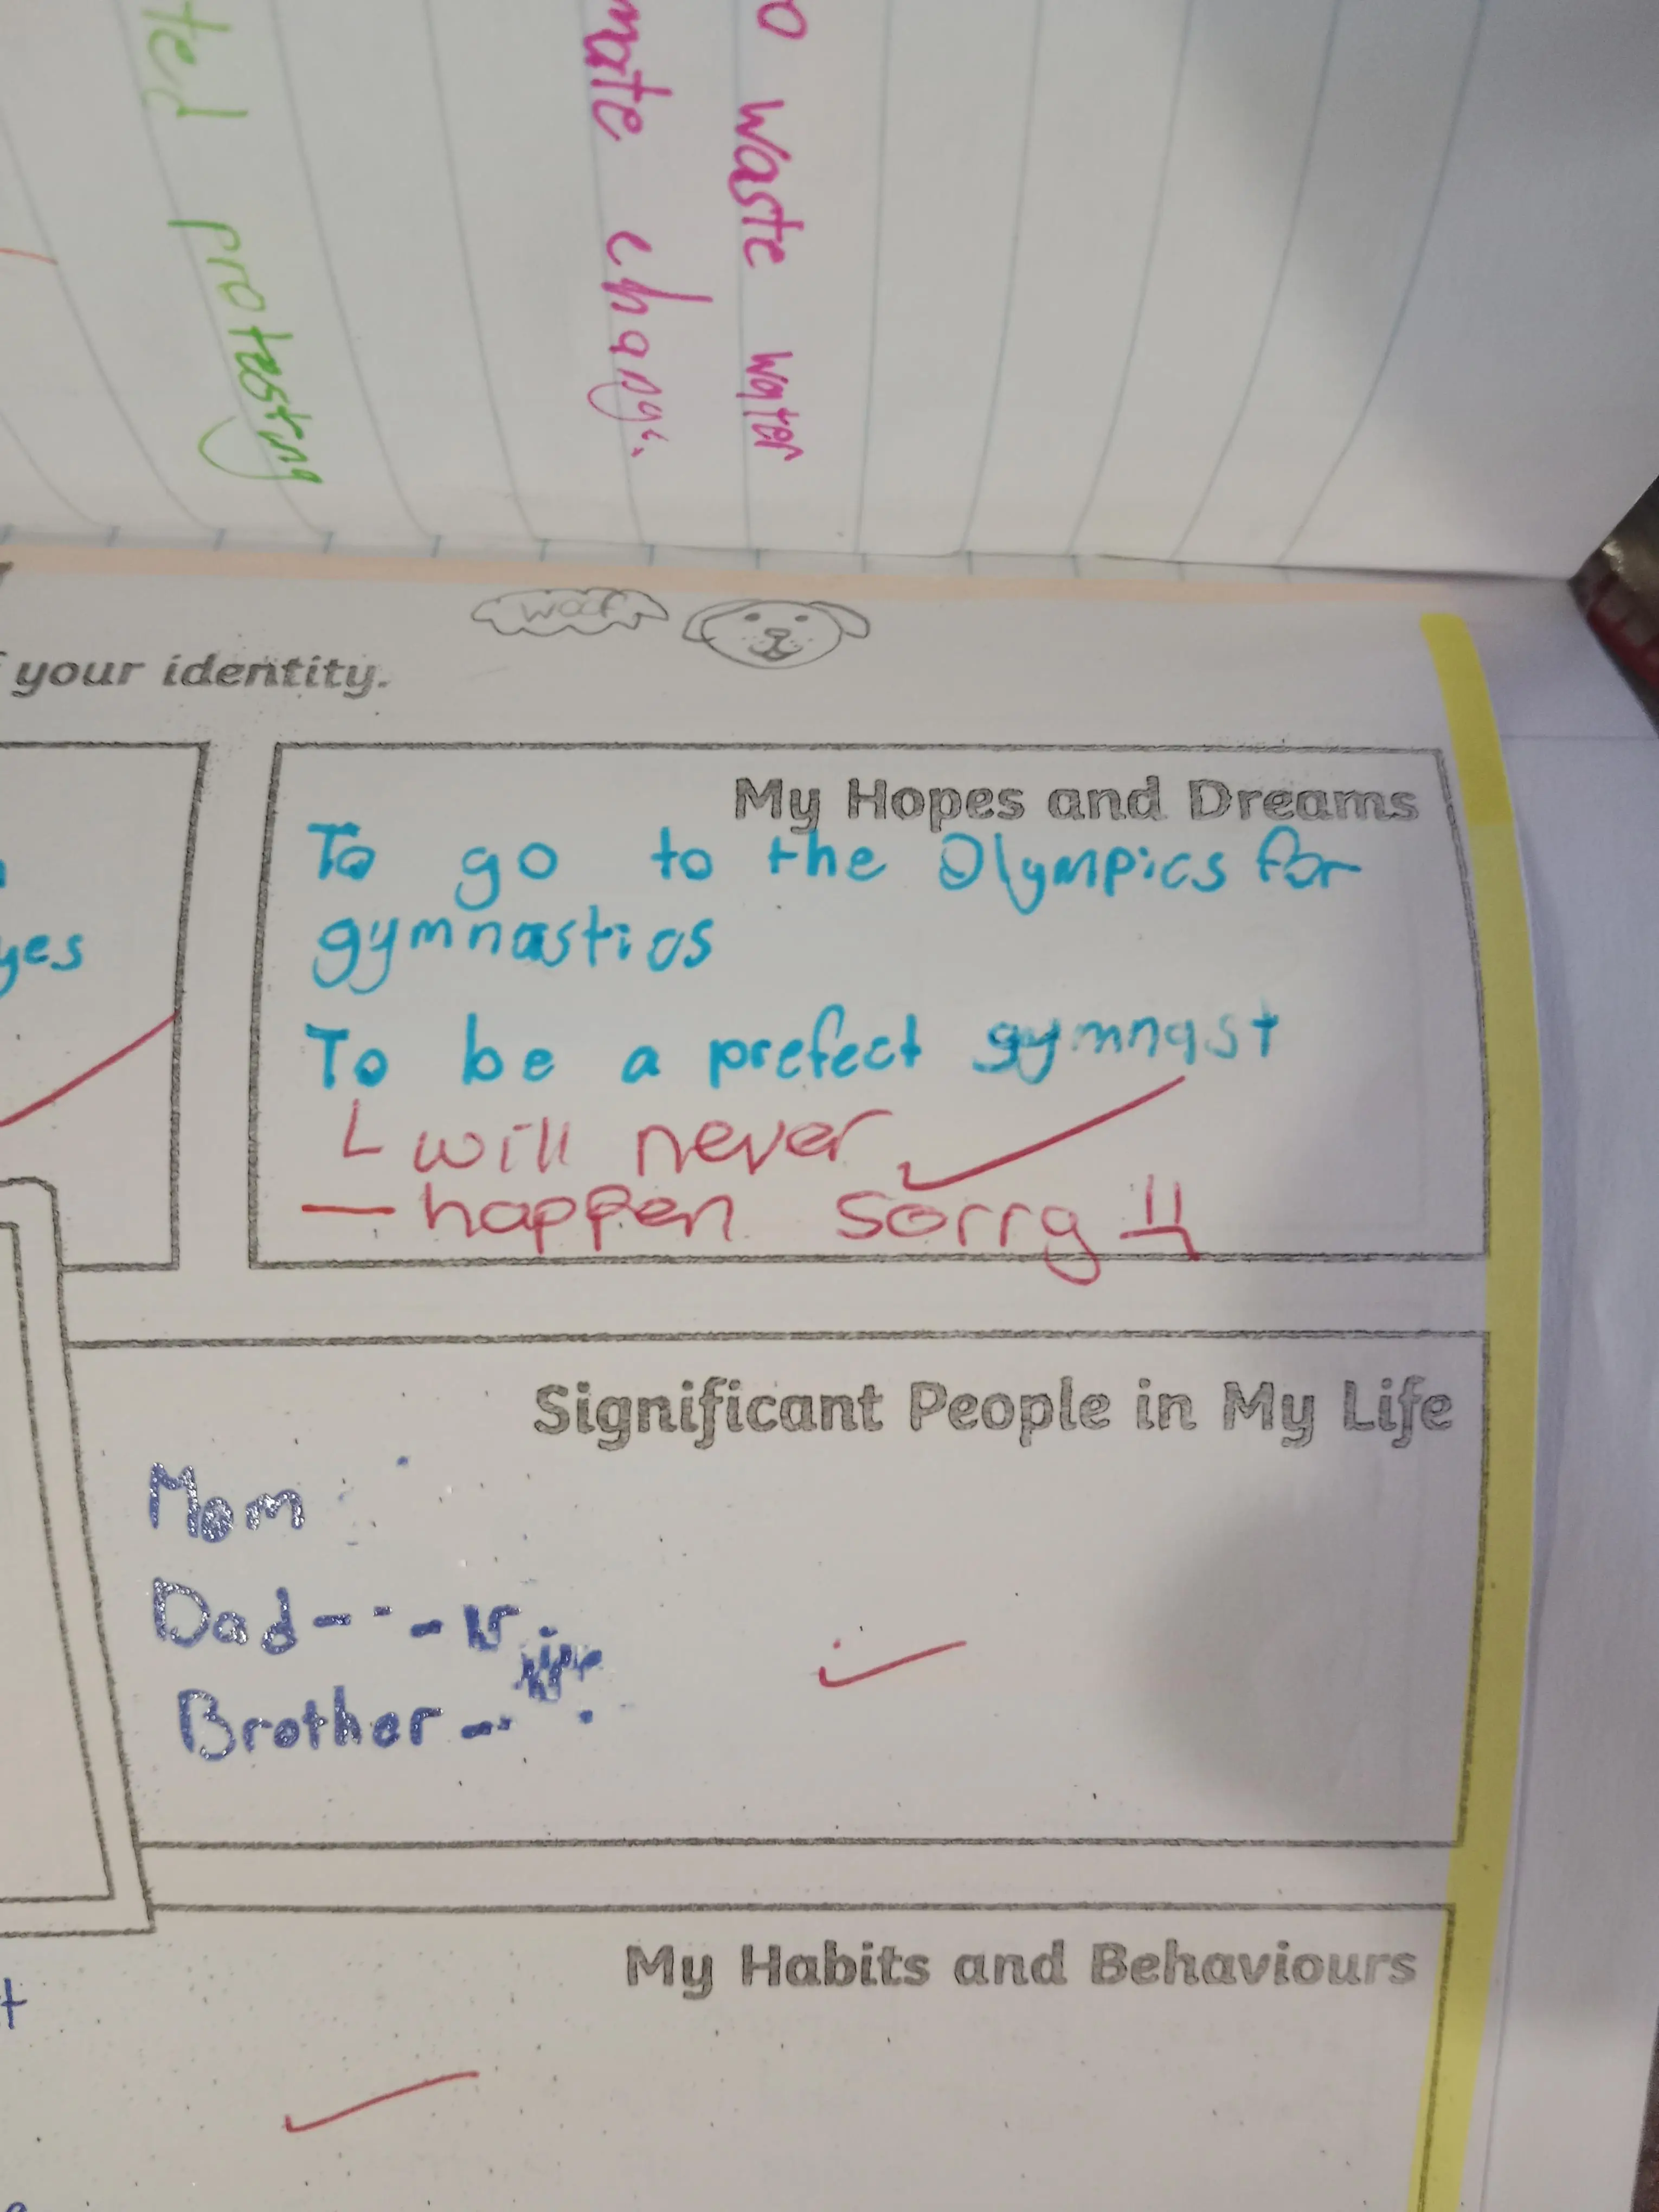 ted protesting
mate change
o waste water
woof
your identity.
yes
My Hopes and Dreams
To go to the Olympics for
gymnastics
To be a prefect gymnast
will never
happen sorry
Significant People in My Life
Mom
Dad
Brother
My Habits and Behaviours